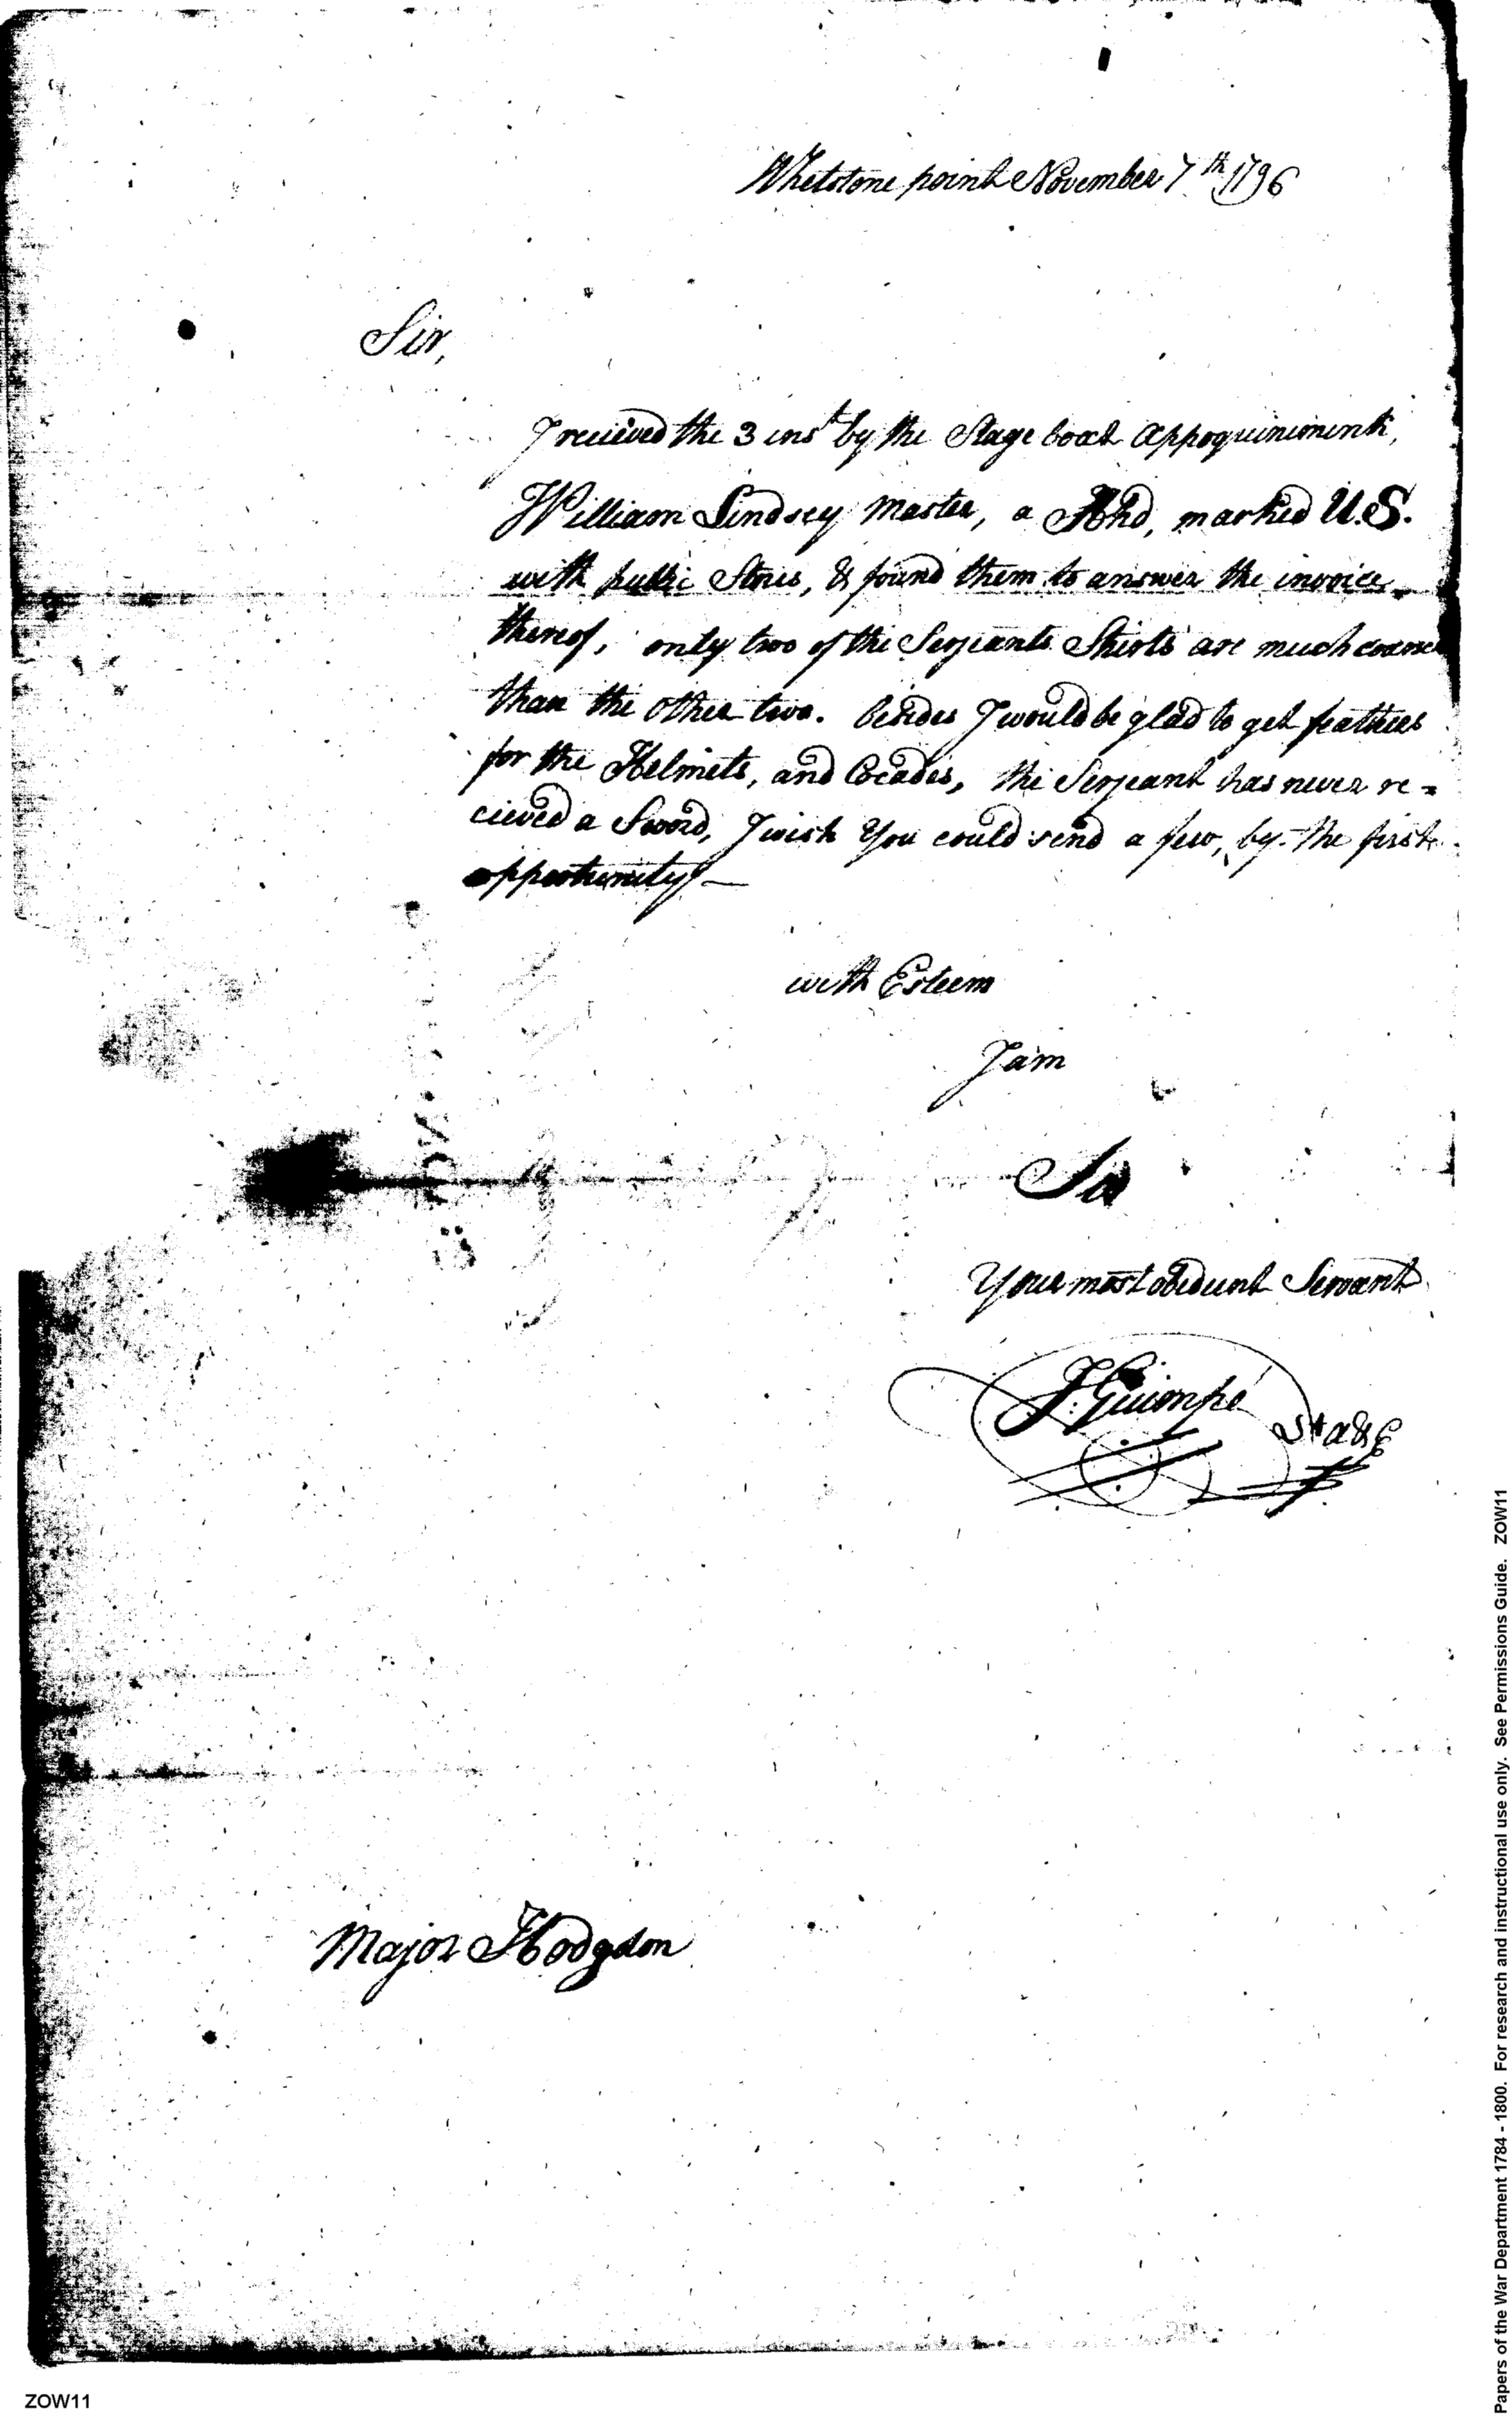 Whetstone point November 7th 1796
Sir,
I recieved the 3 inst by the Stage boat Appoquinimink,
William Lindsey Master, a Hhd, marked U.S.
with public Stores, & found them to answer the invoice
thereof, only two of the Serjeants Shirts are much coarser
than the other two. Besides I would be glad to get feathers
for the Helmets, and Cocades, the Serjeant has never re=
cieved a Sword, I wish You could send a few, by the first
opportunity —
with Esteem
I am
Sir
Your most obedient Servant
J: Guimpé
Major Hodgdon
ZOW11
Papers of the War Department 1784 - 1800. For research and instructional use only. See Permissions Guide. ZOW11